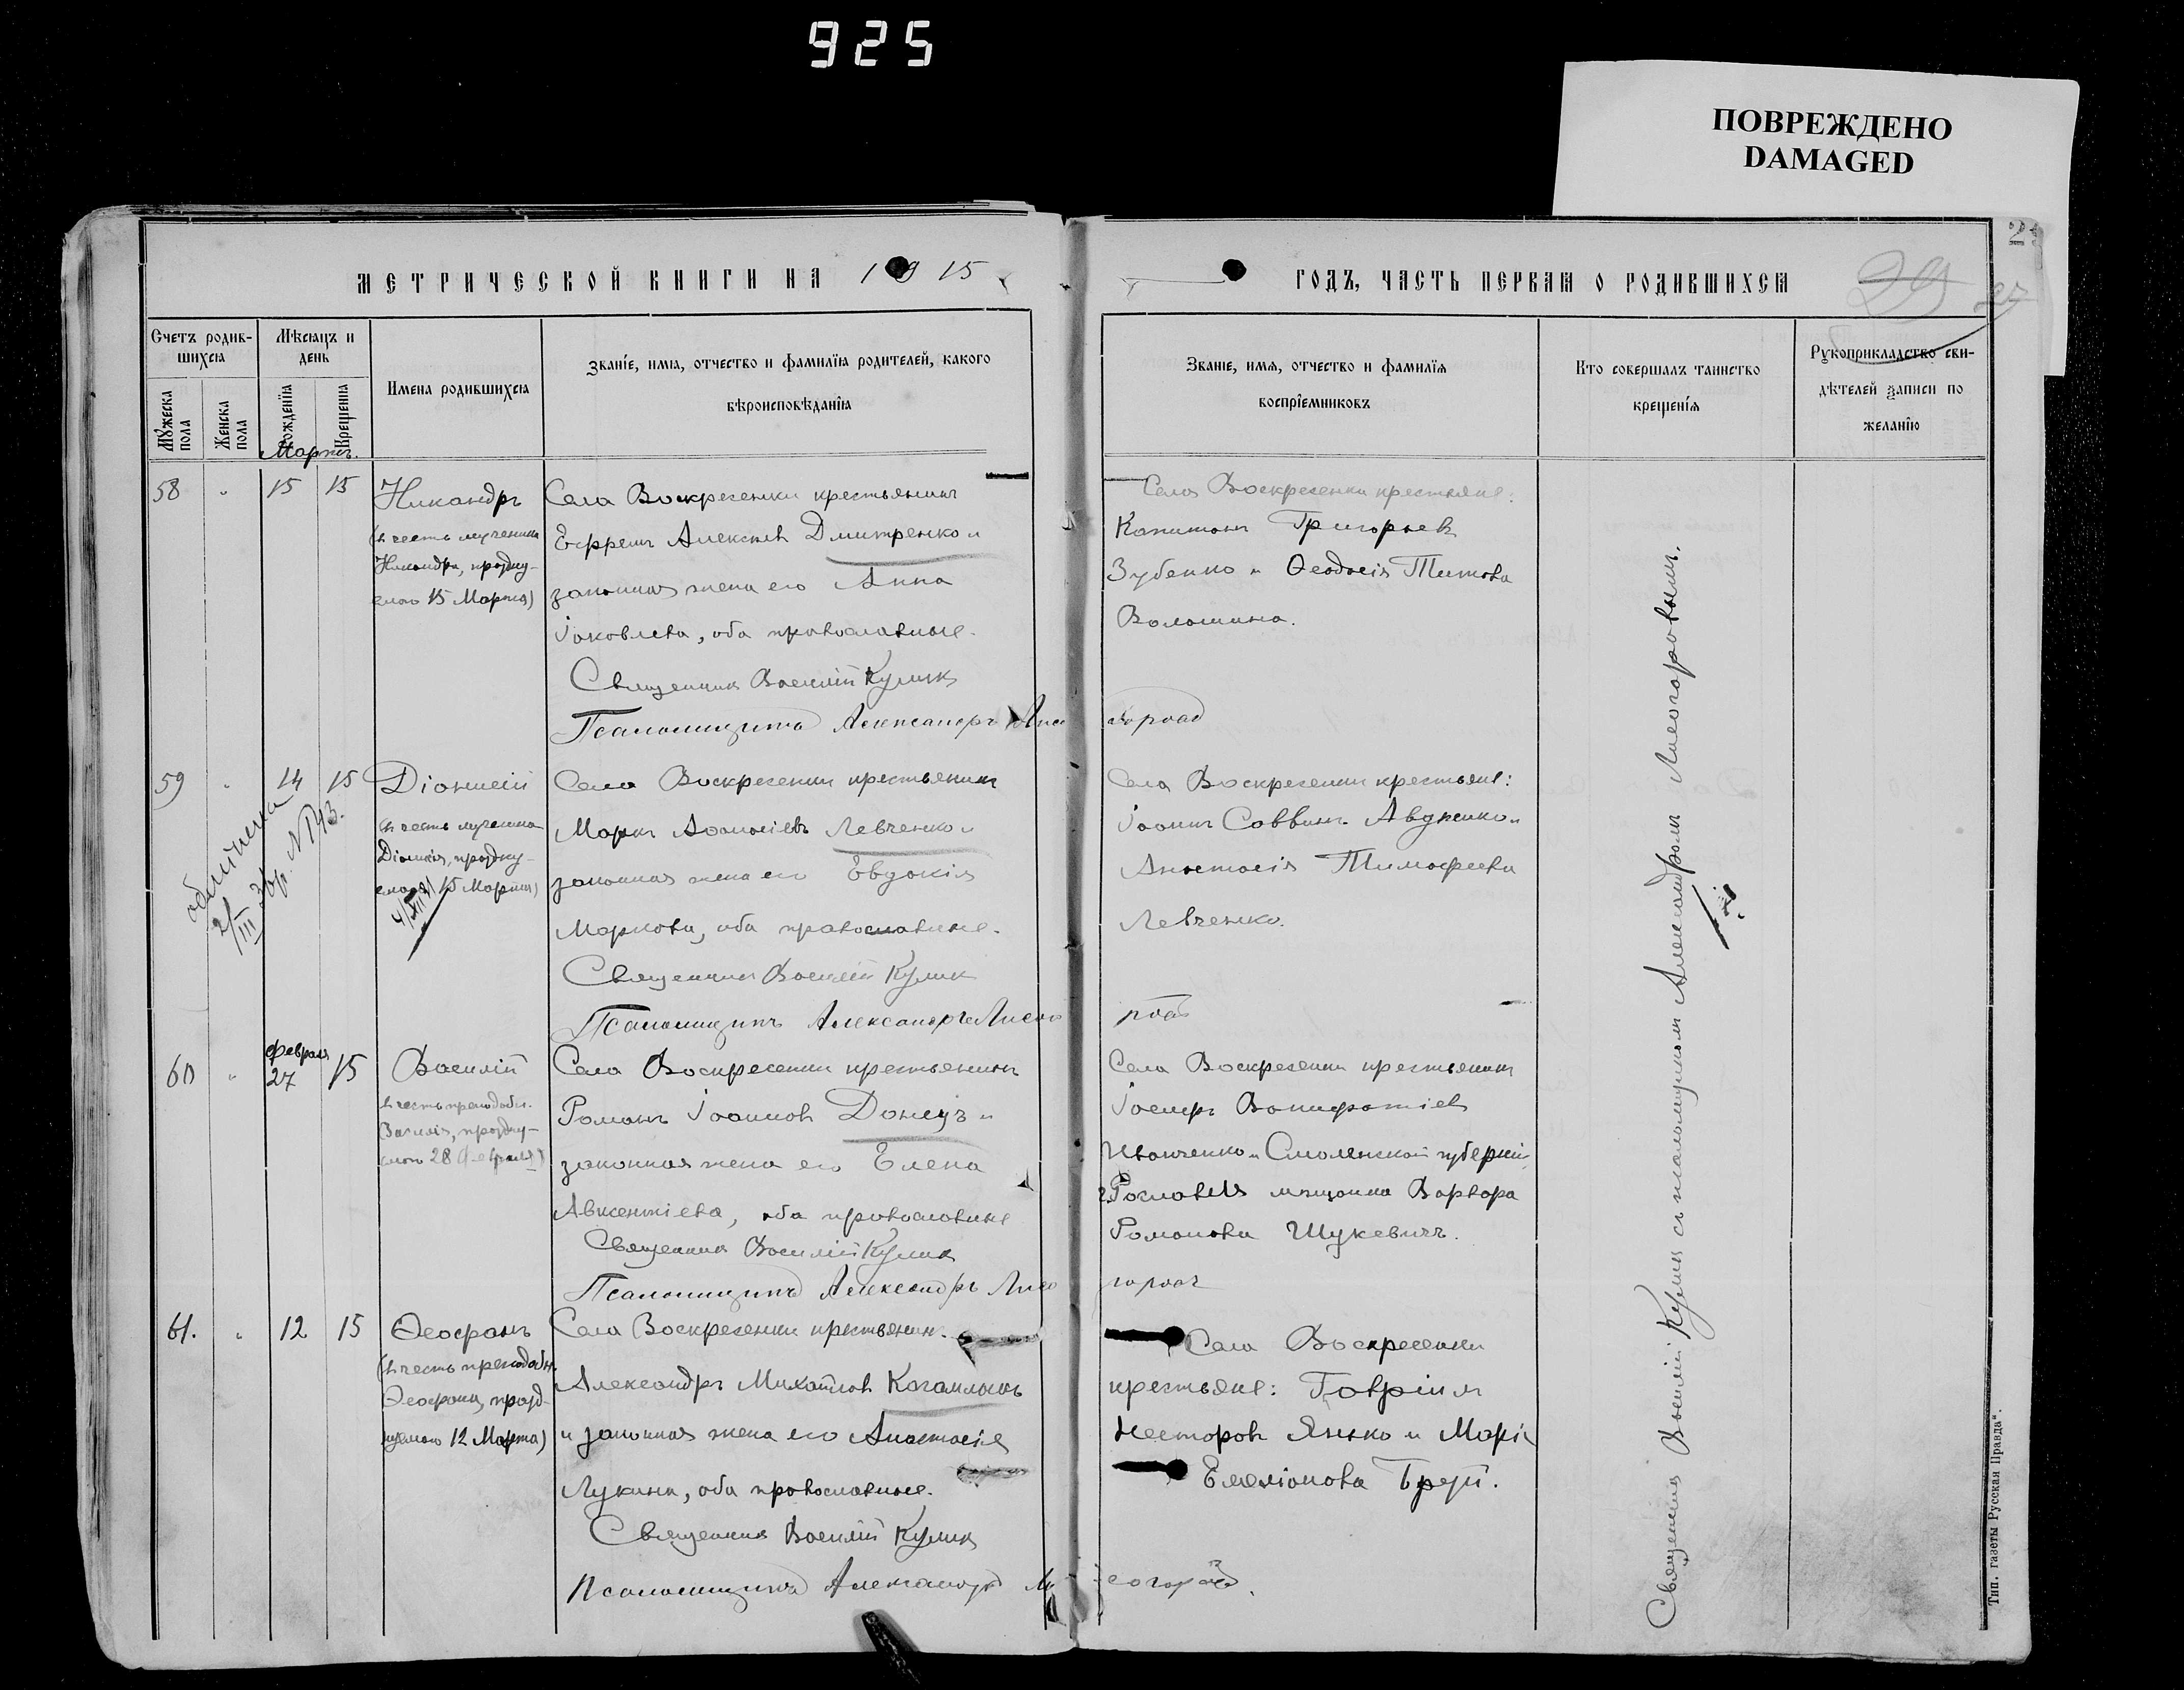 925
ПОВРЕЖДЕНО
DAMAGED
МЕТРИЧЕСКОЙ КНИГИ НА 1915
ГОДЪ, ЧАСТЬ ПЕРВАЯ О РОДИВШИХСЯ
29
27
Счетъ родив-
шихся
Мужеска пола
Женска пола
Мѣсяцъ и
день
Рожденїя
Крещенїя
Имена родившихся
Званїе, имя, отчество и фамилїя родителей, какого
вѣроисповѣданїя
Званїе, имя, отчество и фамилїя
воспрїемниковъ
Кто совершалъ таинство
крещенїя
Рукоприкладство сви-
дѣтелей записи по
желанїю
Мартъ.
58 " 15 15
Никандръ
(въ честь мученика
Никандра, праздну-
емаго 15 Марта)
Села Воскресенки крестьянинъ
Ефремъ Алексѣевъ Дмитренко и
законная жена его Анна
Іаковлева, оба православные.
Священникъ Василій Куликъ
Псаломщикъ Александръ Лисогоровъ
Села Воскресенки крестьяне:
Капитонъ Григорьевъ
Зубенко и Ѳеодосія Титова
Волошина.
59 " 14 15
Діонисій
(въ честь мученика
Діонисія, праздну-
емаго 15 Марта)
2/III Збр. №143.
Села Воскресенки крестьянинъ
Маркъ Аѳанасіевъ Левченко и
законная жена его Евдокія
Маркова, оба православные.
Священникъ Василій Куликъ
Псаломщикъ Александръ Лисогоровъ
Села Воскресенки крестьяне:
Іоаннъ Саввинъ Авдѣенко и
Анастасія Тимофеева
Левченко.
60 " Февраля 27 15
Василій
(въ честь преподобн.
Василія, праздну-
емаго 28 Февраля)
Села Воскресенки крестьянинъ
Романъ Іоанновъ Донецъ и
законная жена его Елена
Авксентіева, оба православные
Священникъ Василій Куликъ
Псаломщикъ Александръ Лисогоровъ
Села Воскресенки крестьянинъ
Іосифъ Вонифатіевъ
Иванченко и Смоленской губерніи,
г. Рославля мѣщанка Варвара
Романова Шукевичъ.
61. " 12 15
Ѳеофанъ
(въ честь преподобн.
Ѳеофана, празд-
нуемаго 12 Марта)
Села Воскресенки крестьянин.
Александръ Михайловъ
и законная жена его Анастасія
Лукина, оба православные.
Священникъ Василій Куликъ
Псаломщикъ Александръ Лисогоровъ.
Села Воскресенки
крестьяне: Гавріилъ
Несторовъ Янко и Марія
Емеліанова
Священникъ Василій Куликъ съ псаломщикомъ Александромъ Лисогоровымъ.
Тип. газеты „Русская Правда“.